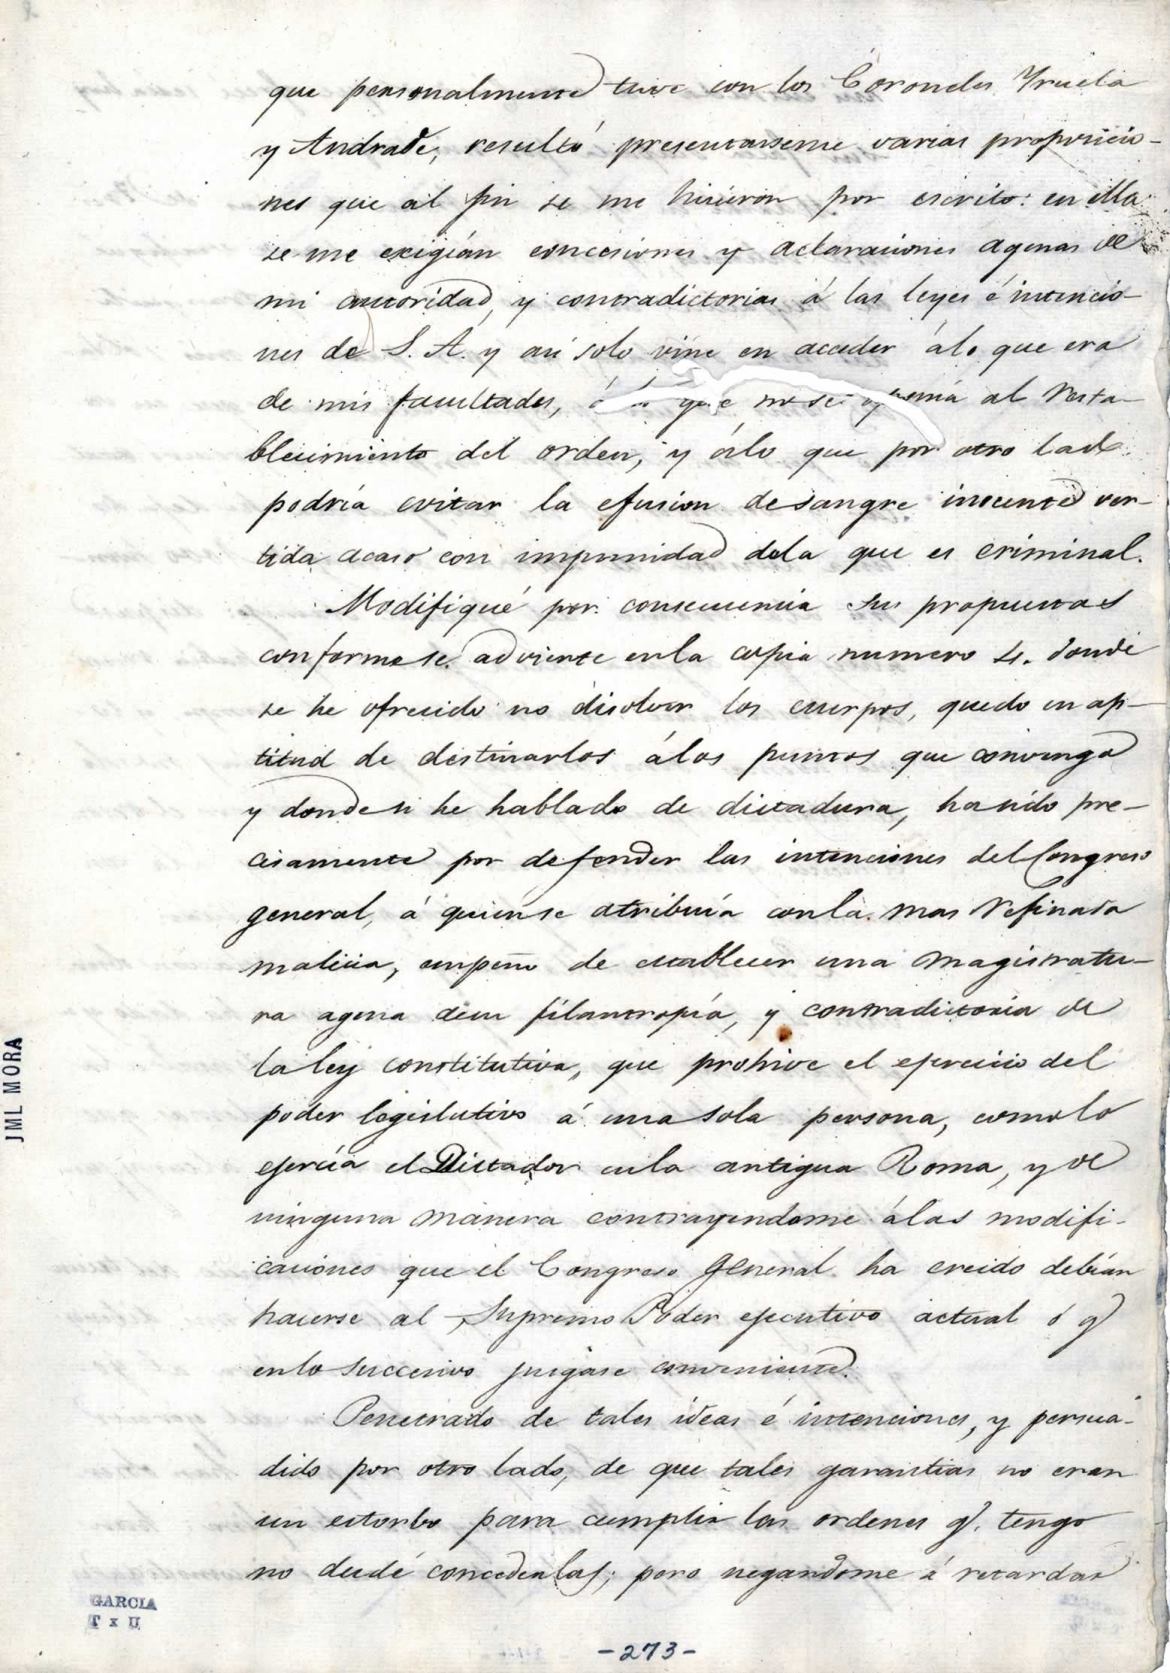 que personalmente tuve con los Coroneles Yruela
y Andrade, resultó presentarseme varias proposicio-
nes que al fin se me hicieron por escrito: en ella
se me exigían concesiones y aclaraciones agenas de
mi autoridad, y contradictorias á las leyes é intencio-
nes de S. A. y así solo vine en acceder álo que era
de mis facultades, á lo que no se oponía al resta-
blecimiento del orden, y álo que por otro lado
podría evitar la efusion desangre inocente ver-
tida acaso con impunidad dela que es criminal.
Modifiqué por consecuencia sus propuestas
conformese advierte enla copia numero 4. donde
se he ofrecido no disolver los cuerpos, quedo en ap-
titud de destinarlos álos puntos que convenga
y donde si he hablado de dictadura, hasido pre-
cisamente por defender las intenciones del Congreso
general, á quiense atribuía conla mas refinada
malicia, empeño de establecer una magistratu-
ra agena desu filantropía, y contradictoria de
laley constitutiva, que prohive el ejercicio del
poder legislativo á unasola persona, comolo
ejercía el Dictador enla antigua Roma, y de
ninguna manera contrayendome álas modifi-
caciones que el Congreso General ha creido debían
hacerse al Supremo Poder ejecutivo actual ó q.
enlo succesivo juzgase conveniente.
Penetrado de tales ideas é intenciones, y persua-
dido por otro lado, de que tales garantias no eran
un estorbo para cumplir las ordenes q. tengo
no dudé concederlas; pero negandome á retardar
JML MORA
GARCIA
T x II
-273-